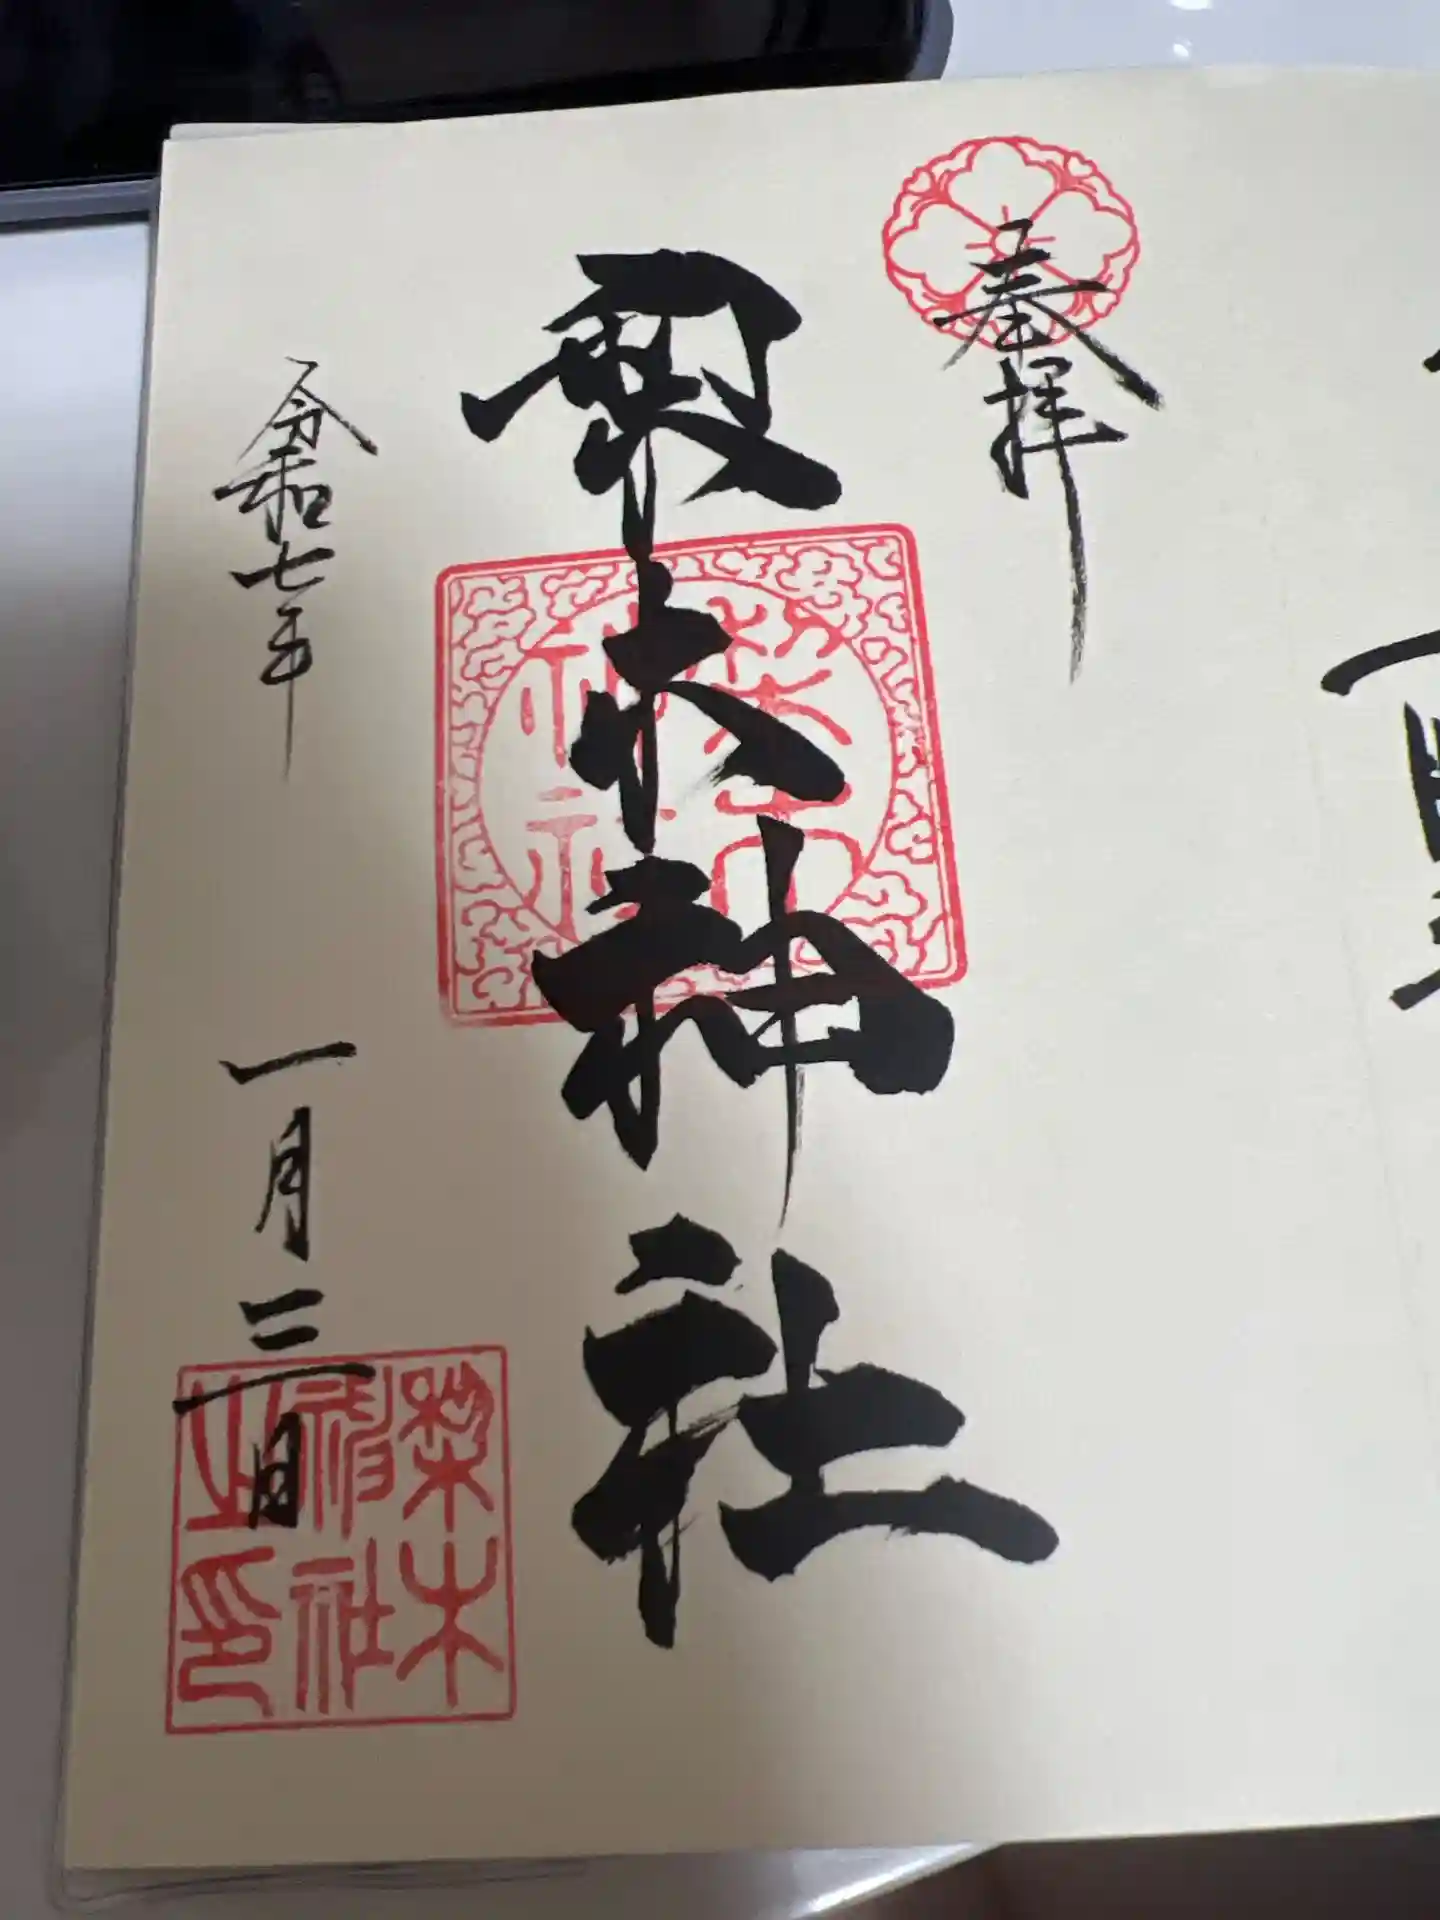 奉拝
梨木神社
令和七年 一月三日
梨木
神社
之印